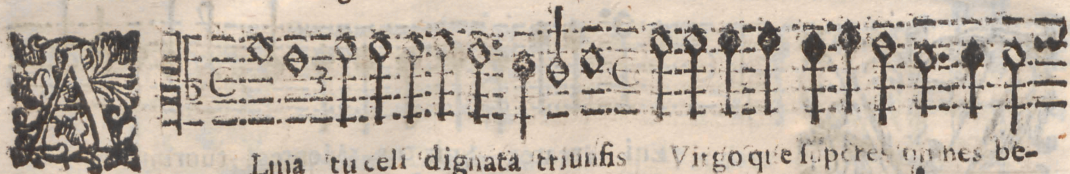 ALma tu celi dignata triunfis Virgo que superes omnes be-